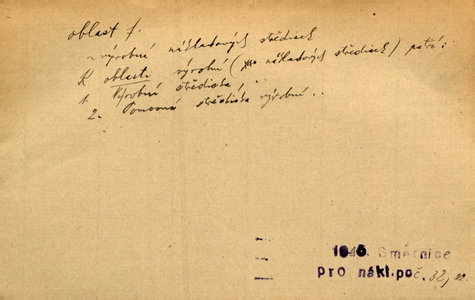 oblast f.
~ výrobní nákladových středisek
K oblasti výrobní (nákladových středisek) patří:
1. Výrobní střediska,
2. Pomocná střediska výrobní..
1940. Směrnice
pro nákl. poč. 32,